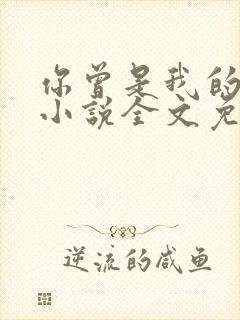 你曾是我的
小说全文免
逆流的咸鱼